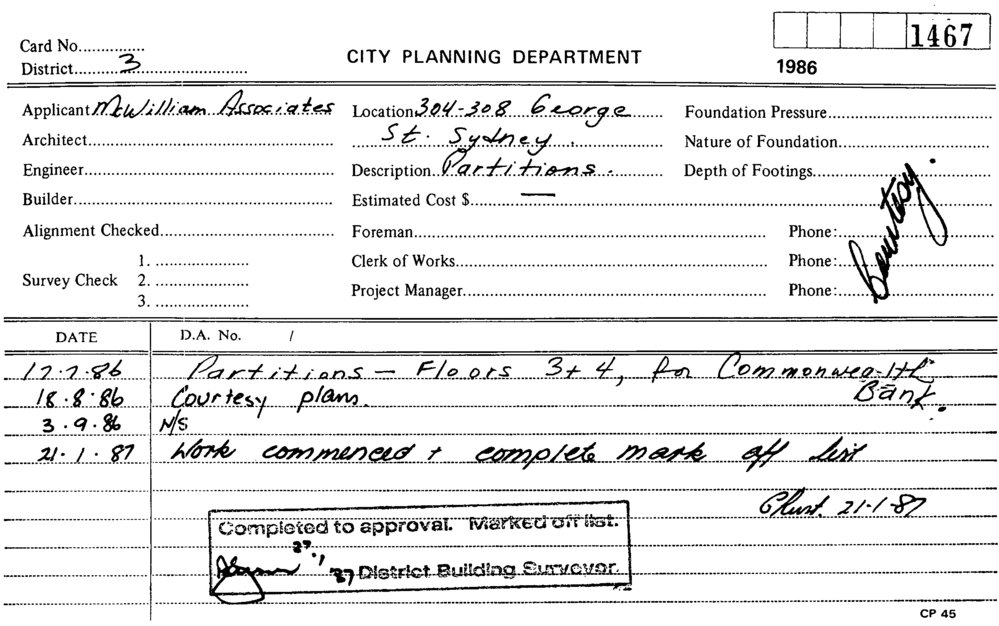 Card No...............
District.......3..........
CITY PLANNING DEPARTMENT
1467
1986
Applicant McWilliam Associates
Location 304-308 George
St. Sydney.
Foundation Pressure
Architect
Nature of Foundation
Engineer
Description Partitions.
Depth of Footings
Builder
Estimated Cost $ —
Courtesy.
Alignment Checked
Foreman
Phone:
Survey Check
1.
2.
3.
Clerk of Works
Phone:
Project Manager
Phone:
DATE
D.A. No. /
17.7.86 Partitions — Floors 3+4, for Commonwealth
Bank.
18.8.86 Courtesy plans.
3.9.86 N/S
21.1.87 Work commenced + complete mark off list
21-1-87
Completed to approval. Marked off list.
27.1
'87 District Building Surveyor.
CP 45